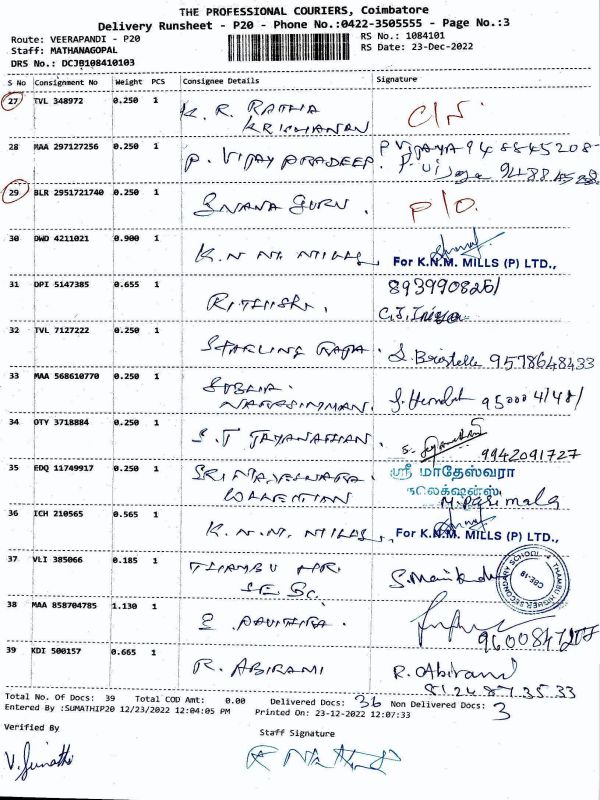 THE PROFESSIONAL COURIERS, Coimbatore
Delivery Runsheet - P20 - Phone No.:0422-3505555 - Page No.:3
Route: VEERAPANDI - P20
RS No.: 1084101
Staff: MATHANAGOPAL
RS Date: 23-Dec-2022
DRS No.: DCJB108410103
S No Consignment No Weight PCS Consignee Details Signature
27 TVL 348972 0.250 1 K. R. RATHA C/N.
KRISHANAN
28 MAA 297127256 0.250 1 P. VIJAY PRADEEP. P VIJAYA 948845208
29 BLR 2951721740 0.250 1 GNANA GURU. P/O.
30 DWD 4211021 0.900 1 K. N. M. MILLS
For K.N.M. MILLS (P) LTD.,
31 OPI 5147385 0.655 1 8939908261
32 TVL 7127222 0.250 1 STARLING RAJA. 9578648433
33 MAA 568610770 0.250 1 95000 41481
NARASIMMAN.
34 OTY 3718884 0.250 1 S. T JAYANATHAN.
9942091727
35 EDQ 11749917 0.250 1 ஸ்ரீ மாதேஸ்வரா
M. Parimala
36 ICH 210565 0.565 1 K. N. M. MILLS. For K.N.M. MILLS (P) LTD.,
37 VLI 385066 0.185 1 THAMBU HR.
SE. Sc.
38 MAA 858704785 1.130 1
39 KDI 500157 0.665 1 R. ABIRAMI R. Abirami
8124873533
Total No. Of Docs: 39 Total COD Amt: 0.00 Delivered Docs: 36 Non Delivered Docs: 3
Entered By :SUMATHIP20 12/23/2022 12:04:05 PM Printed On: 23-12-2022 12:07:33
Verified By
Staff Signature